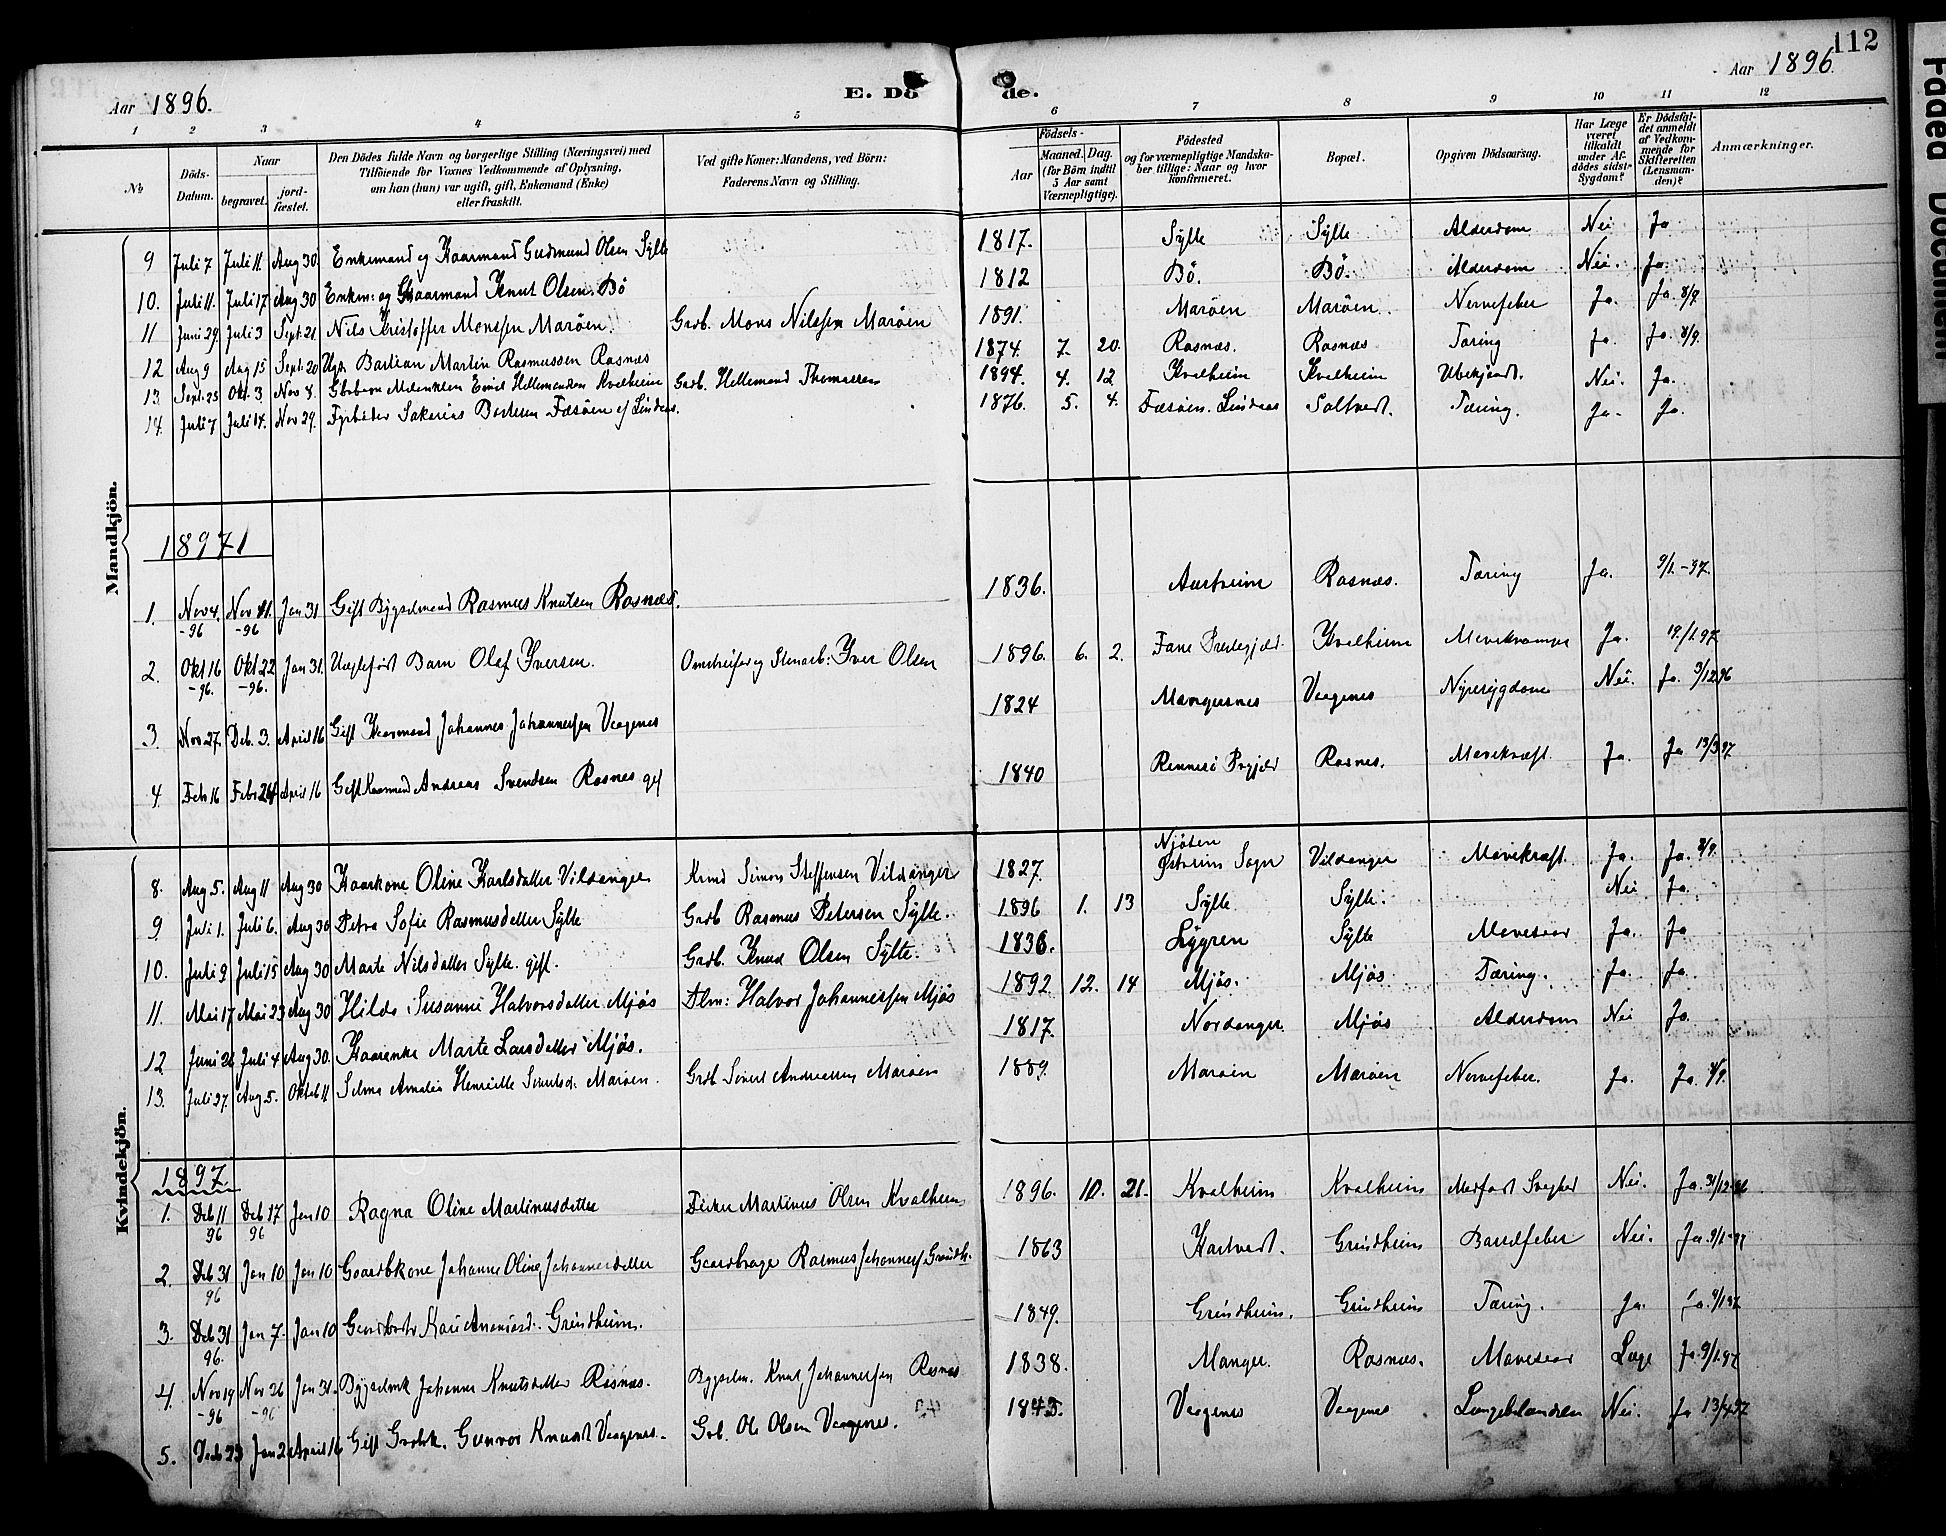 112
Faded Document
Aar 1896.
E. Dö de.
Aar 1896.
1 2 3 4 5 6 7 8 9 10 11 12
No
Döds-Datum.
Naar
begravet.
jord-fæstet.
Den Dödes fulde Navn og borgerlige Stilling (Næringsvei) med
Tilföiende for Voxnes Vedkommende af Oplysning,
om han (hun) var ugift, gift, Enkemand (Enke)
eller fraskilt.
Ved gifte Koner: Mandens, ved Börn:
Faderens Navn og Stilling.
Födsels-
Aar
Maaned. Dag.
(for Börn indtil
5 Aar samt
Værnepligtige).
Födested
og for værnepligtige Mandska-
ber tillige: Naar og hvor
konfirmeret.
Bopæl.
Opgiven Dödsaarsag.
Har Læge
været
tilkaldt
under Af-
dödes sidste
Sygdom?
Er Dödsfal-
det anmeldt
af Vedkom-
mende for
Skifteretten
(Lensman-
den)?
Anmærkninger.
Mandkjön.
9 Juli 7 Juli 11. Aug 30. Enkemand og Kaarmand Gudmund Olsen Sylte 1817. Sylte Sylte Alderdom Nei Ja
10. Juli 11. Juli 17 Aug 30 Enkem: og Kaarmand Knut Olsen Bö 1812 Bö. Bö. Alderdom Nei. Ja
11 Juni 29. Juli 3 Sept. 21. Nils Kristoffer Monssen Maröen. Grdb. Mons Nilssen Maröen 1891. Maröen Maröen. Nervefeber Ja. Ja. 8/9.
12 Aug 9 Aug 15 Sept. 20 Ugft Bastian Martin Rasmussen Rosnæs 1874. 7. 20. Rosnæs. Rosnæs Tæring Ja. Ja. 8/9.
13. Sept. 25 Okt. 3. Nov 8. Emil Hellemandsen Kvalheim Grdb. Hellemand Thomassen 1894. 4. 12 Kvalheim Kvalheim Ubekjendt. Nei. Ja.
14. Juli 7 Juli 14. Nov 29. Sakerias Bertesen Fæsöen af Lindaas. 1876. 5. 4. Fæsöen. Lindaas Soltvedt. Tæring. Ja. Ja.
1897
1. Nov 4. -96 Nov 11. -96 Jan 31. Gift Bygselmand Rasmus Knutsen Rosnæs. 1836. Austreim Rosnæs. Tæring Ja. 9/1-97.
2. Okt 16 -96. Okt 22 -96. Jan 31. Uægtefödt Barn Olaf Iversen. Omstreifer og Stenarb: Iver Olsen 1896. 6. 2. Fane Prestegjæld. Kvalheim Mavekrampe Ja. 19/1.97
3. Nov 27. Deb. 3. April 16 Gift Kaarmand Johannes Johannessen Vaagenes 1824 Mangersnes Vaagenes Nyresygdom Nei. Ja. 3/12 96
4. Feb 16 Febr 24 April 16 Gift Kaarmand Andreas Svendsen Rosnes gift 1840 Rennesö Prgjæld Rosnes. Mavekræft Ja. Ja 13/3 97
Kvindekjön.
8. Aug 5. Aug 11 Aug 30 Kaarkone Oline Karlsdatter Vildanger Simon Steffensen Vildanger 1827 Njöten Østreim Sogn Vildanger Mavekræft Ja. Ja. 8/9.
9. Juli 1. Juli 6. Aug 30 Petra Sofie Rasmusdatter Sylte Grdb Rasmus Petersen Sylte. 1896 1. 13 Sylte Sylte. Nei Ja.
10. Juli 9 Juli 15 Aug 30 Marte Nilsdatter Sylte. gift. Grdb. Knud Olsen Sylte. 1836. Lygren Sylte Mavesaar Ja. Ja
11. Mai 17 Mai 23 Aug 30 Hilda Susanne Halvorsdatter Mjös Alm: Halvor Johannessen Mjös 1892 12. 14 Mjös. Mjös Tæring. Ja. Ja.
12 Juni 26 Juli 4 Aug 30. Kaarenke Marte Larsdatter Mjös. 1817. Nordanger. Mjös Alderdom Nei Ja.
13. Juli 27. Aug 5. Oktob 11 Selma Amalia Henriette Sivertsd. Maröen. Grdb Sivert Andreassen Maröen 1889. Maröen Maröen Nervefeber. Ja. Ja. 8/9.
1897
1. Deb 11 96 Deb 17 96 Jan 10 Ragna Oline Martinusdatter Martinus Olsen Kvalheim 1896. 10. 21. Kvalheim Kvalheim Medfödt Svaghed Nei. Ja. 31/12.96
2. Deb 31 96 Jan 10 Jan 10 Gaardbkone Johanne Oline Johannesdatter Gaardbruge Rasmus Johanness Grindh. 1863 Hartvedt. Grindheim Barselfeber Nei. Ja. 9/1-97
3. Deb 31 96. Jan 7. Jan 10 Kari Grindheim. 1849. Grindheim. Grindheim Tæring. Ja. Ja. 9/1 97
4. Nov 19 -96 Nov 26 -96 Jan 31. Johanne Knutsdatter Rosnæs. Bygselm. Knut Johannessen Rosnæs 1838. Manger. Rosnæs. Mavesaar Læge Ja. 9/1.97
5. Deb 23 Jan 2 April 16 Gift Grdbk. Gunvor Knutsd Vaagenes. Grb. Ole Olsen Vaagenes. 1843. Vaagenes Vaagenes Nei. Ja 13/4 97